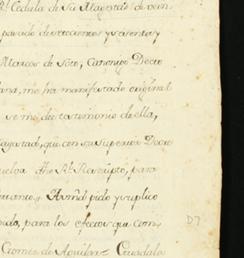 Rl. Cedula de Su Magestad de vein
pasado de setecientos y noventa y
Marcos de Soto, Canonigo Docto
me ha manifestado original
se me dé testimonio de ella,
Magestad, que con su Superior Decre
Rl. Rescripto, para
Amd. pido y suplico
para los efectos que com,
Guadala
D7